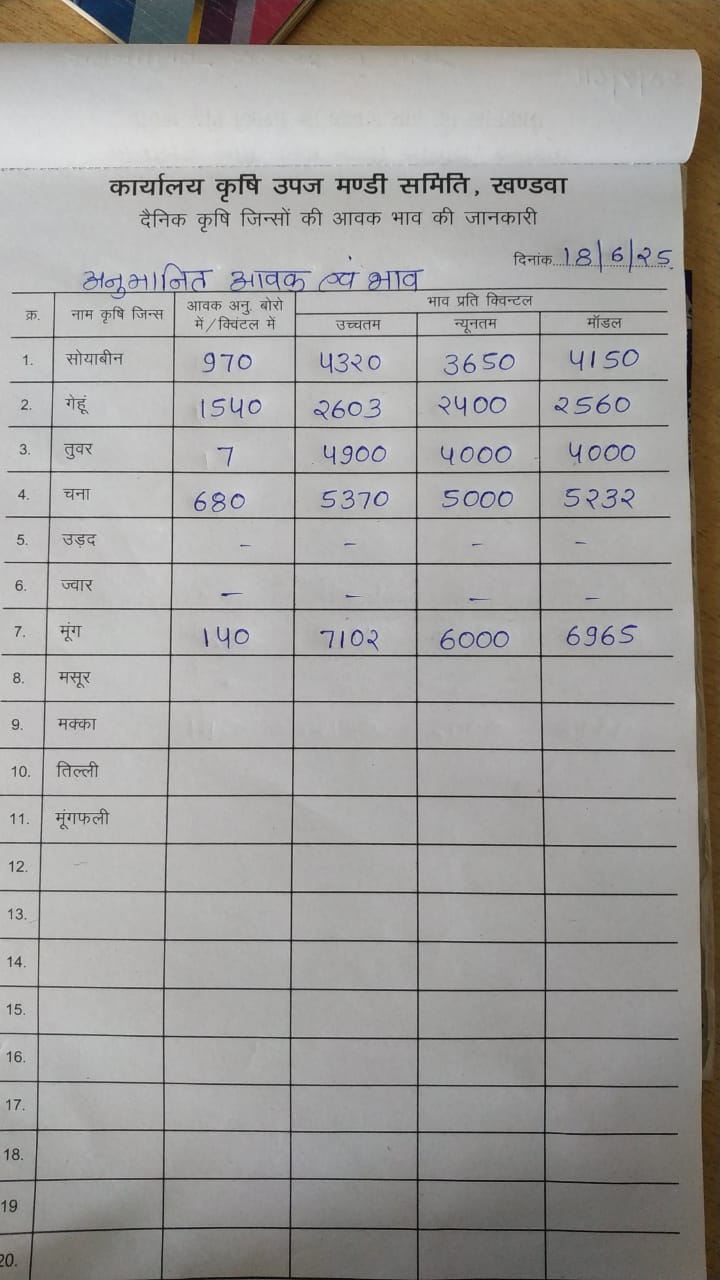 कार्यालय कृषि उपज मण्डी समिति, खण्डवा
दैनिक कृषि जिन्सों की आवक भाव की जानकारी
दिनांक...18/6/२5.
अनुमानित आवक एवं भाव
क्र. नाम कृषि जिन्स आवक अनु. बोरो में/क्विंटल में भाव प्रति क्विन्टल
उच्चतम न्यूनतम मॉडल
1. सोयाबीन 970 4320 3650 4150
2. गेहूं 1540 २603 २400 २560
3. तुवर 7 4900 4000 4000
4. चना 680 5370 5000 5२3२
5. उड़द - - - -
6. ज्वार - - - -
7. मूंग 140 710२ 6000 6965
8. मसूर
9. मक्का
10. तिल्ली
11. मूंगफली
12.
13.
14.
15.
16.
17.
18.
19
20.